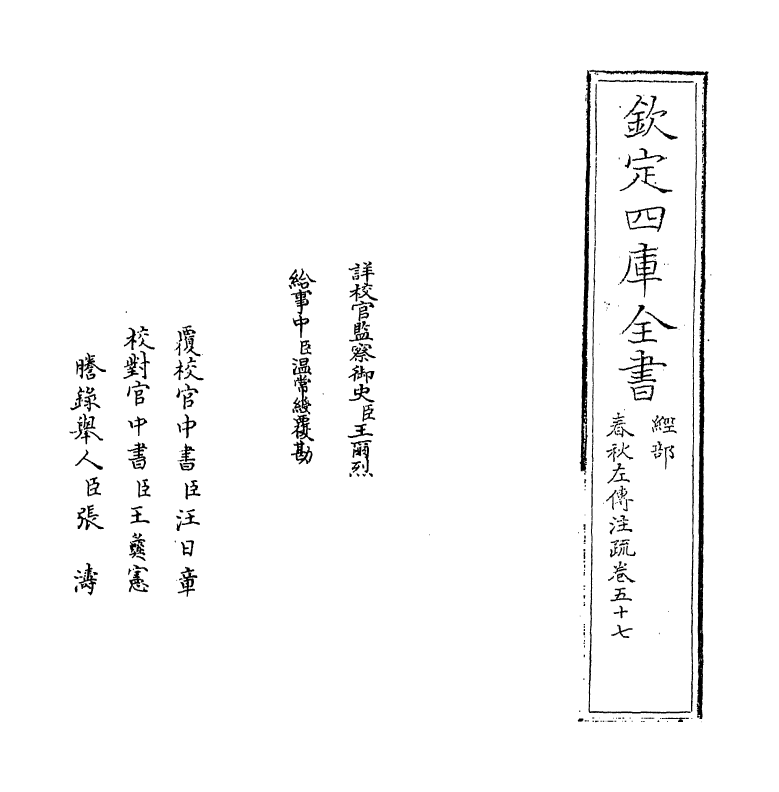 欽定四庫全書
經部
春秋左傳注疏卷五十七
詳校官監察御史臣王爾烈
給事中臣温常綬覆勘
覆校官中書臣汪日章
校對官中書臣王彝憲
謄錄舉人臣張濤